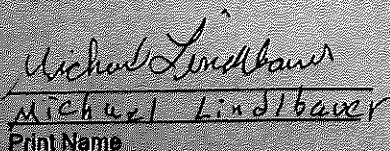 Michael Lindlbauer
Michael Lindlbauer
Print Name